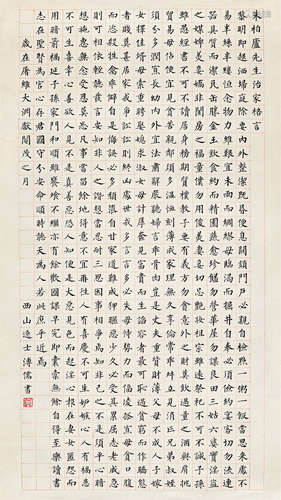 朱柏廬先生治家格言
黎明即起灑掃庭除要內外整潔既昏便息關鎖門戶必親自檢點一粥一飯當思來處不
易半絲半縷恆念物力維艱宜未雨而綢繆毋臨渴而掘井自奉必須儉約宴客切勿流連
器具質而潔瓦缶勝金玉飲食約而精園蔬愈珍饈勿營華屋勿謀良田三姑六婆實淫盜
之媒婢美妾嬌非閨房之福童僕勿用俊美妻妾切忌艷妝祖宗雖遠祭祀不可不誠子孫
雖愚經書不可不讀居身務期質樸教子要有義方勿貪意外之財勿飲過量之酒與肩挑
貿易毋佔便宜見貧苦親鄰須多溫恤刻薄成家理無久享倫常乖舛立見消亡兄弟叔姪
須分多潤寡長幼內外宜法肅辭嚴聽婦言乖骨肉豈是丈夫重貲財薄父母不成人子嫁
女擇佳壻毋索重聘娶媳求淑女毋計厚奩見富貴而生諂容者最可恥遇貧窮而作驕態
者賤莫甚居家戒爭訟訟則終凶處世戒多言言多必失毋恃勢力而凌逼孤寡毋貪口腹
而恣殺牲禽乖僻自是悔誤必多頹惰自甘家道難成狎暱惡少久必受其累屈志老成急
則可相依輕聽發言安知非人之譖愬當忍耐三思因事相爭焉知非我之不是須平心暗
想施惠無念受恩莫忘凡事當留餘地得意不宜再往人有喜慶不可生妒嫉心人有禍患
不可生喜幸心善欲人見不是真善惡恐人知便是大惡見色而起淫心報在妻女匿怨而
用暗箭禍延子孫家門和順雖饔飧不繼亦有餘歡國課早完即囊橐無餘自得至樂讀書
志在聖賢為官心存君國守分安命順時聽天為人若此庶乎近焉
歲在屠維大淵獻閹茂之月
西山逸士溥儒書